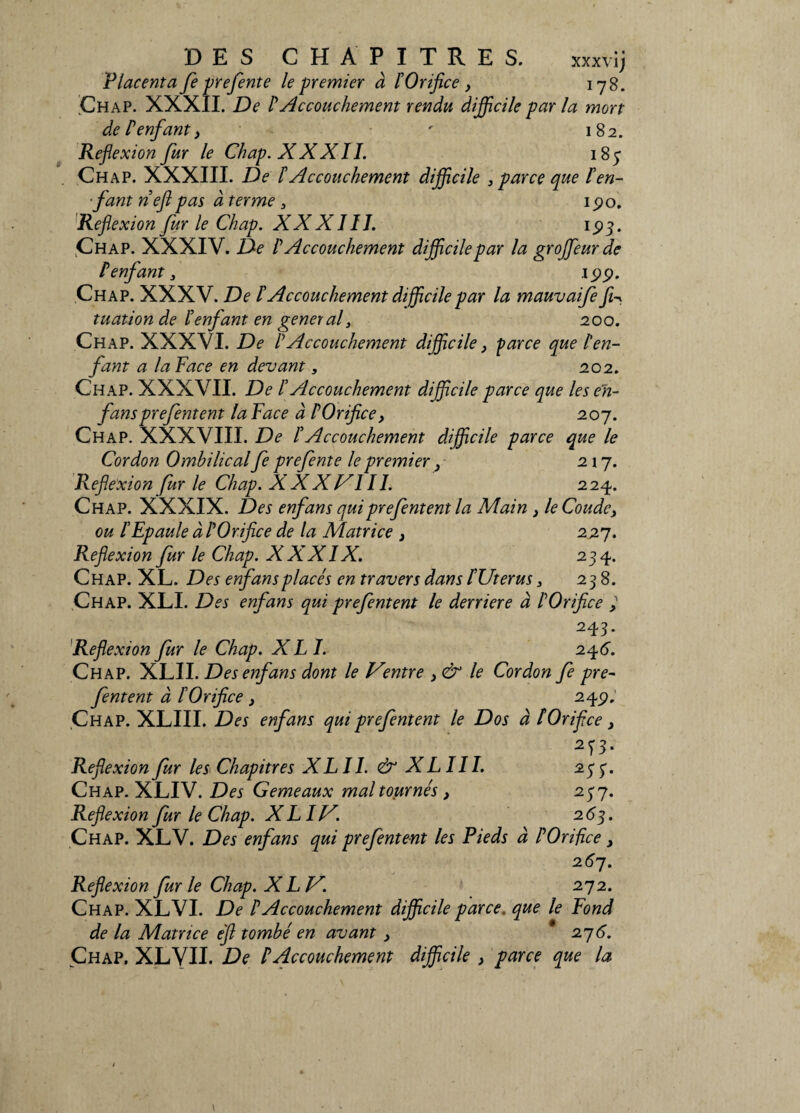 DES CHAPITRES. xxxvij
Placenta ſe preſente le premier à l'Orifice, 178.
CHAP. XXXII. De l'Accouchement rendu difficile par la mort
de l'enfant, 182.
Reflexion ſur le Chap. XXXII. 185
CHAP. XXXIII. De l'Accouchement difficile, parce que l'en-
fant n'eſt pas à terme, 190.
Reflexion ſur le Chap. XXXIII. 193.
CHAP. XXXIV. De l'Accouchement difficile par la groſſeur de
l'enfant, 199.
CHAP. XXXV. De l'Accouchement difficile par la mauvaiſe ſi-
tuation de l'enfant en general, 200.
CHAP. XXXVI. De l'Accouchement difficile, parce que l'en-
fant a la Face en devant, 202.
CHAP. XXXVII. De l'Accouchement difficile parce que les en-
fans preſentent la Face à l'Orifice, 207.
CHAP. XXXVIII. De l'Accouchement difficile parce que le
Cordon Ombilical ſe preſente le premier, 217.
Reflexion ſur le Chap. XXXVIII. 224.
CHAP. XXXIX. Des enfans qui preſentent la Main, le Coude,
ou l'Epaule à l'Orifice de la Matrice, 227.
Reflexion ſur le Chap. XXXIX. 234.
CHAP. XL. Des enfans placés en travers dans l'Uterus, 238.
CHAP. XLI. Des enfans qui preſentent le derriere à l'Orifice,
243.
Reflexion ſur le Chap. XLI. 246.
CHAP. XLII. Des enfans dont le Ventre, & le Cordon ſe pre-
ſentent à l'Orifice, 249.
CHAP. XLIII. Des enfans qui preſentent le Dos à l'Orifice,
253.
Reflexion ſur les Chapitres XLII. & XLIII. 255.
CHAP. XLIV. Des Gemeaux mal tournés, 257.
Reflexion ſur le Chap. XLIV. 263.
CHAP. XLV. Des enfans qui preſentent les Pieds à l'Orifice,
267.
Reflexion ſur le Chap. XLV. 272.
CHAP. XLVI. De l'Accouchement difficile parce que le Fond
de la Matrice eſt tombé en avant, 276.
CHAP. XLVII. De l'Accouchement difficile, parce que la